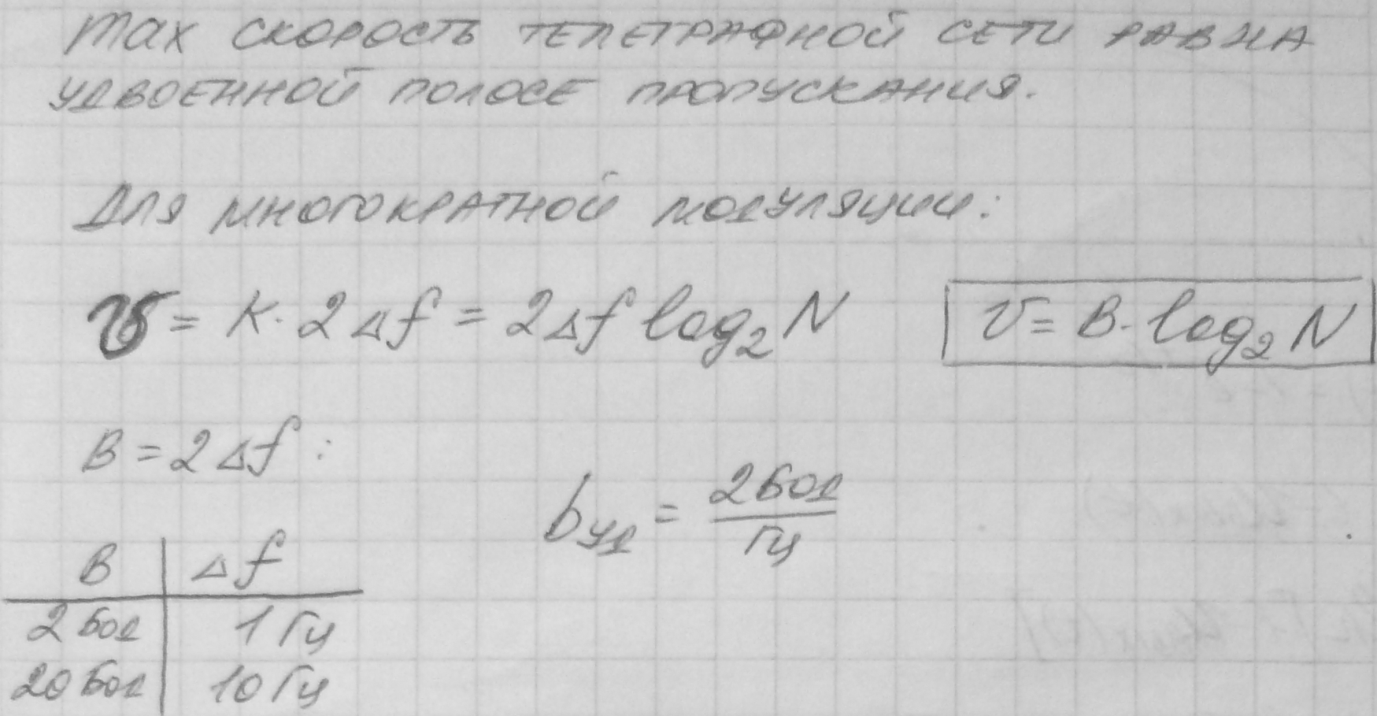 max скорость телеграфной сети равна
удвоенной полосе пропускания.
Для многократной модуляции:
v = K · 2Δf = 2Δf log₂N
v = B · log₂N
B = 2Δf :
bуд = 2Бод/Гц
B | Δf
2 Бод | 1 Гц
20 Бод | 10 Гц